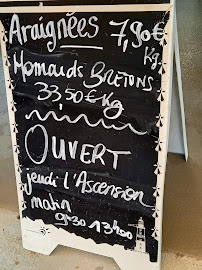 Araignées 7,90€
Kg
Homards BRETONS
33,50€Kg
OUVERT
jeudi l'Ascension
matin
9h30 13h00